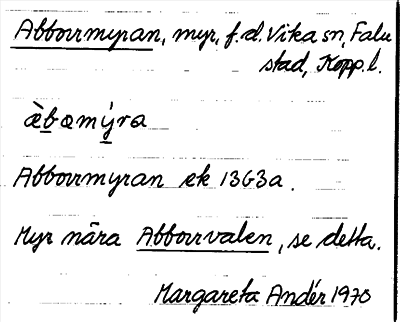 Abborrmyran, myr, f.d. Vika sn, Falu
stad, Kopp.l.
æ̀bæmýra
Abborrmyran ek 13G3a.
Myr nära Abborrvalen, se detta.
Margareta Andér 1970